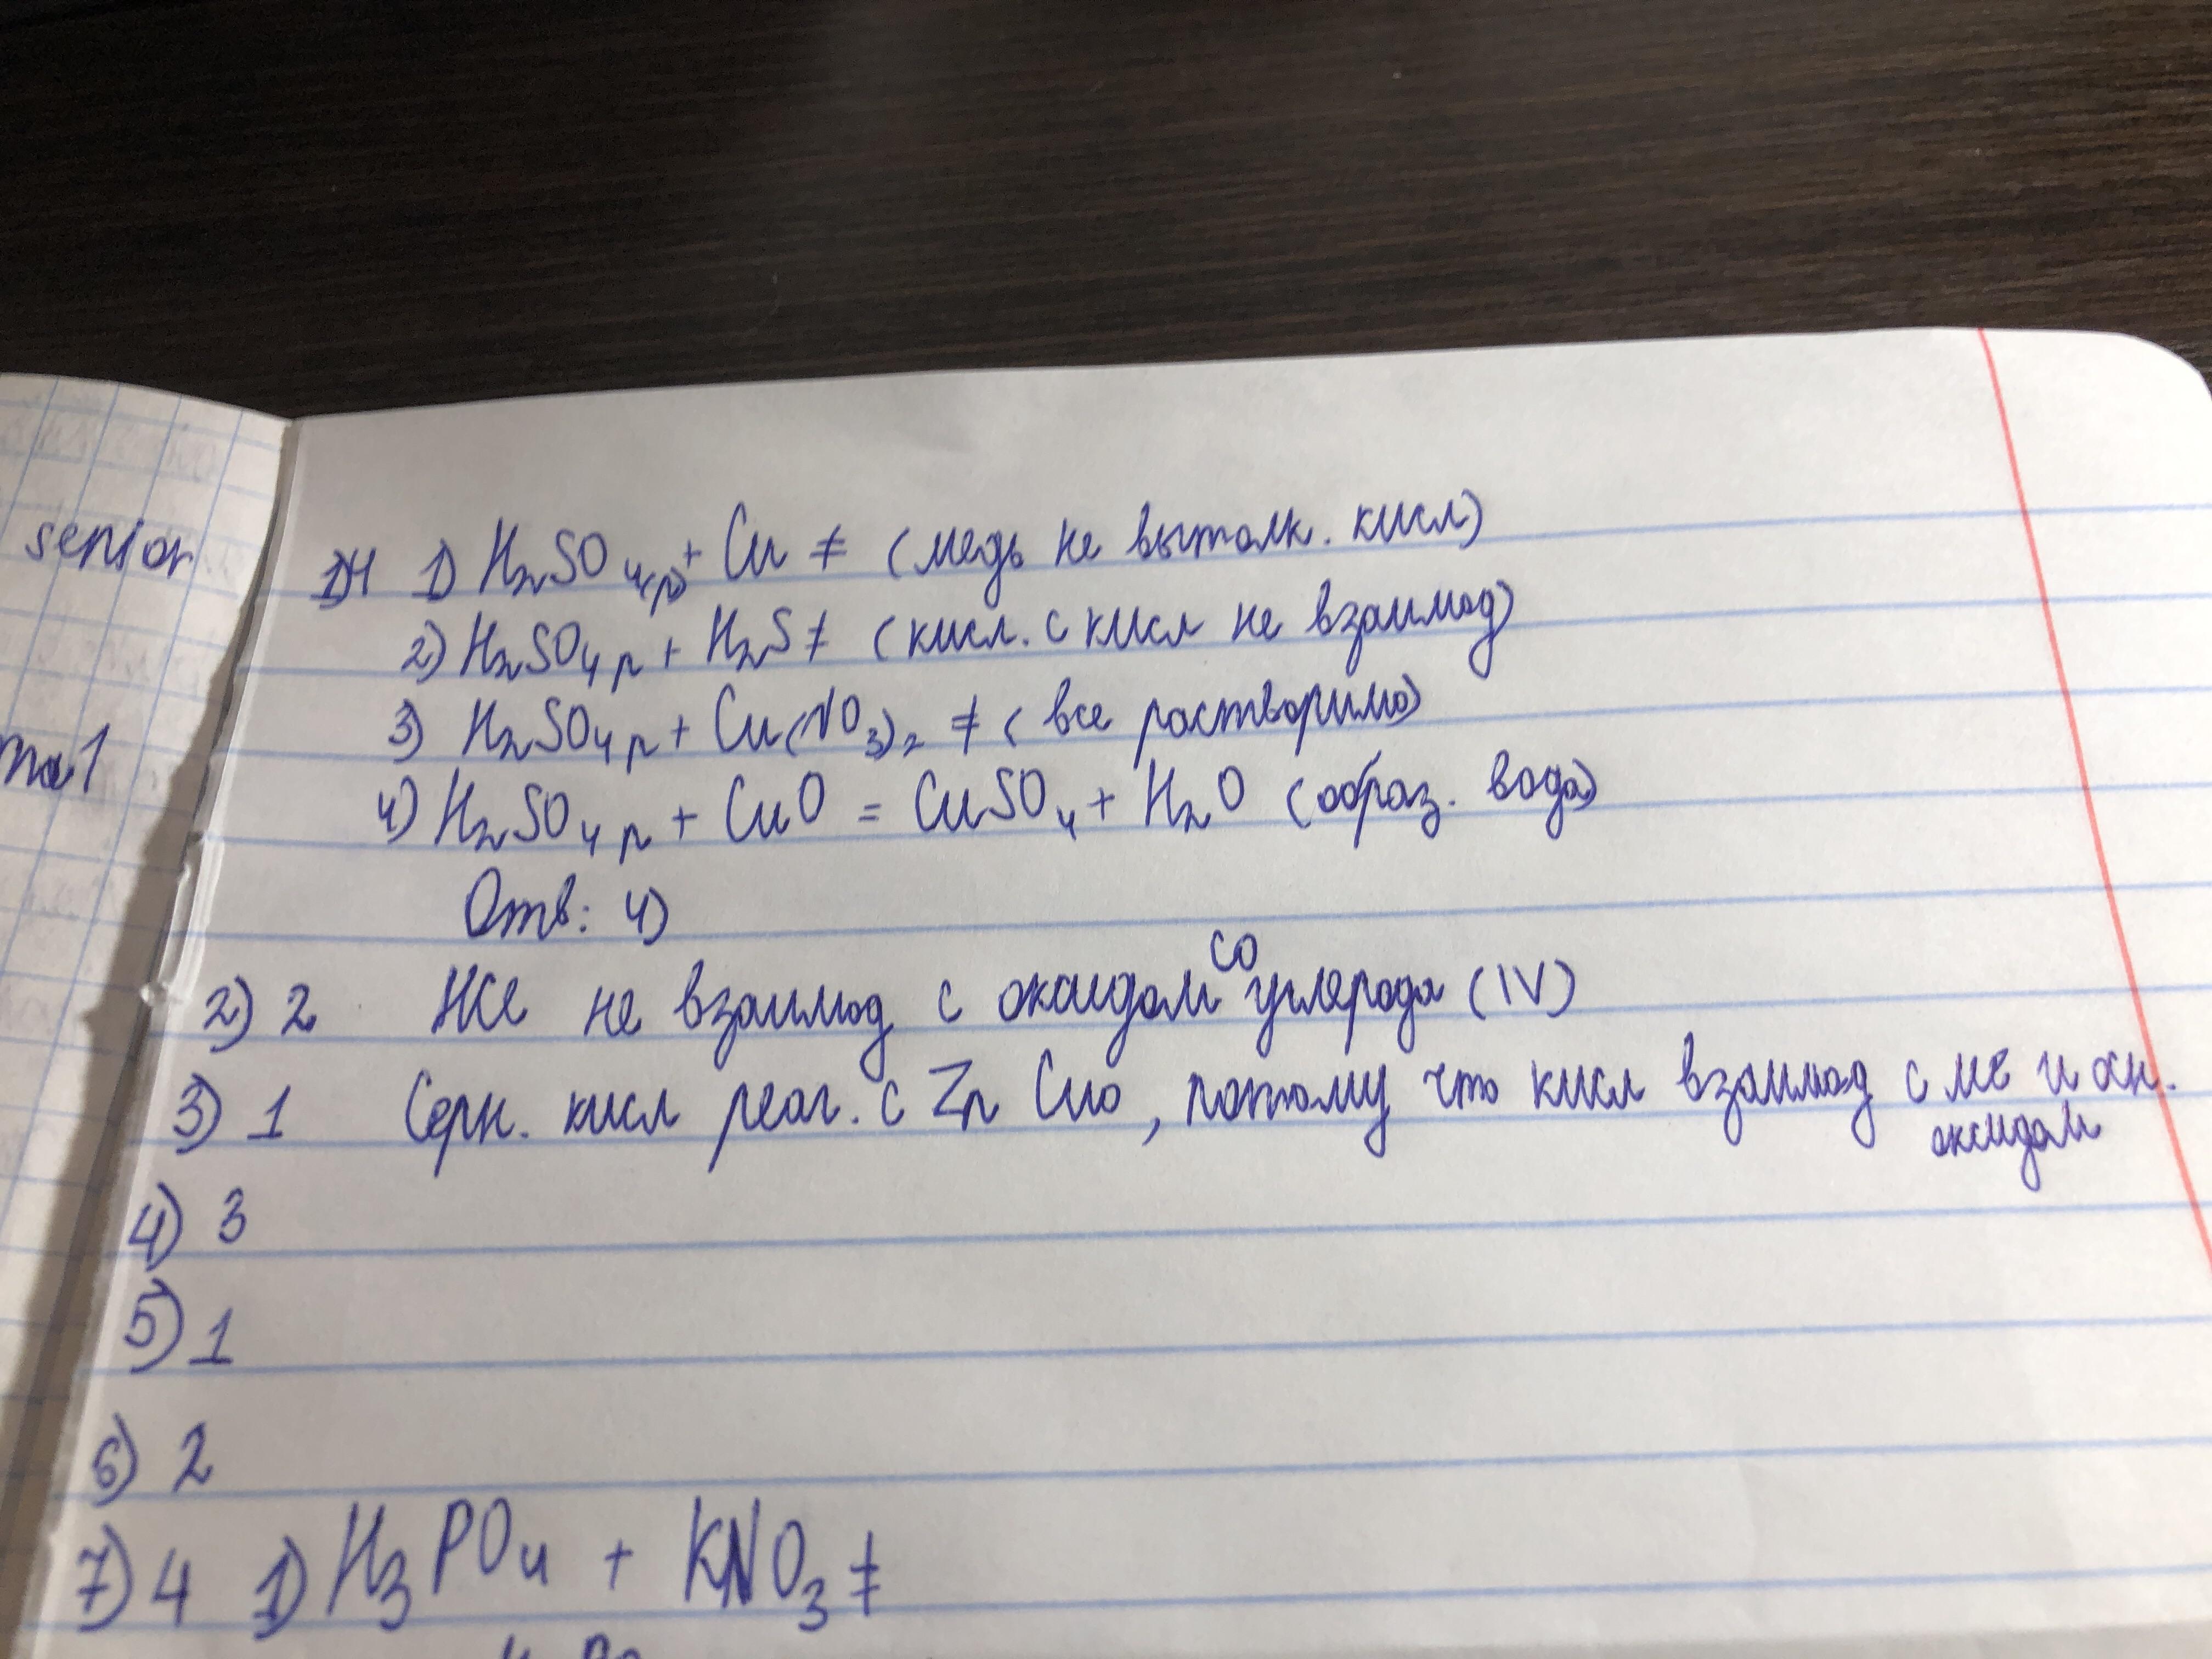 senior
ma1
1)4 1) H₂SO₄(р) + Cu ≠ (медь не вытолк. кисл)
2) H₂SO₄ р + H₂S ≠ (кисл. с кисл не взаимод)
3) H₂SO₄ р + Cu(NO₃)₂ ≠ (все растворимо)
4) H₂SO₄ р + CuO = CuSO₄ + H₂O (образ. вода)
Отв: 4)
2) 2 HCl не взаимод с оксидом CO углерода (IV)
3) 1 Серн. кисл реаг. с Zn CuO, потому что кисл взаимод с ме и осн.
оксидом
4) 3
5) 1
6) 2
7) 4 1) H₃PO₄ + KNO₃ ≠